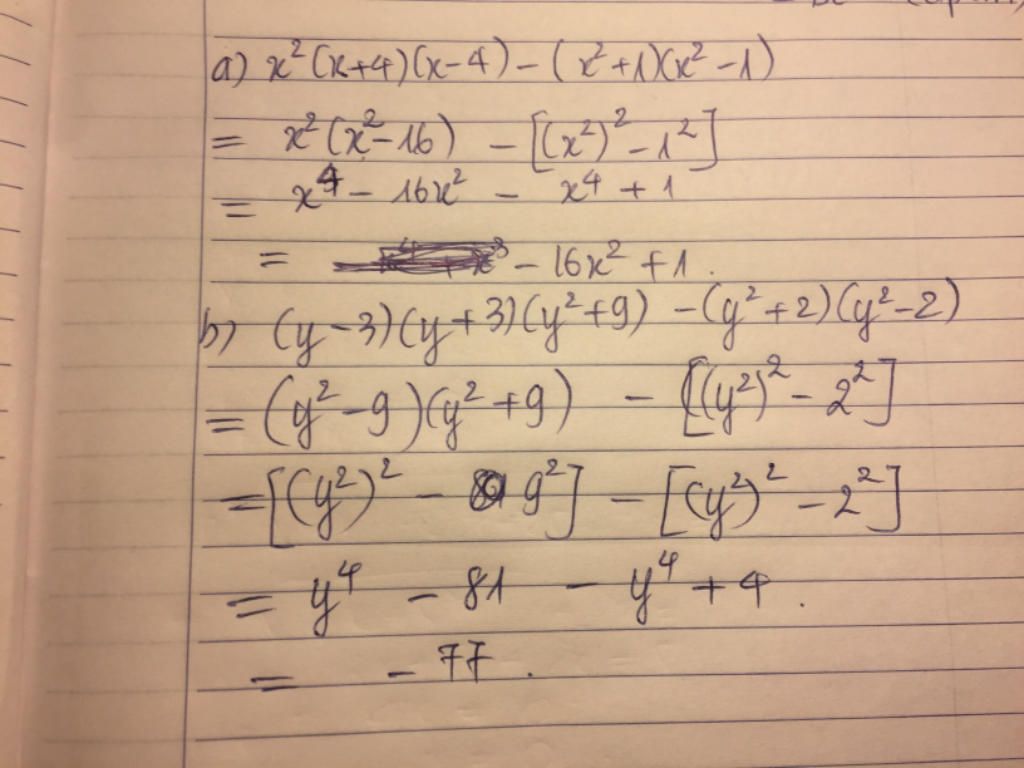 a) x²(x+4)(x-4) - (x²+1)(x²-1)
= x²(x²-16) - [(x²)² - 1²]
= x⁴ - 16x² - x⁴ + 1
= - 16x² + 1.
b) (y-3)(y+3)(y²+9) - (y²+2)(y²-2)
= (y²-9)(y²+9) - [(y²)² - 2²]
= [(y²)² - 9²] - [(y²)² - 2²]
= y⁴ - 81 - y⁴ + 4.
= - 77.